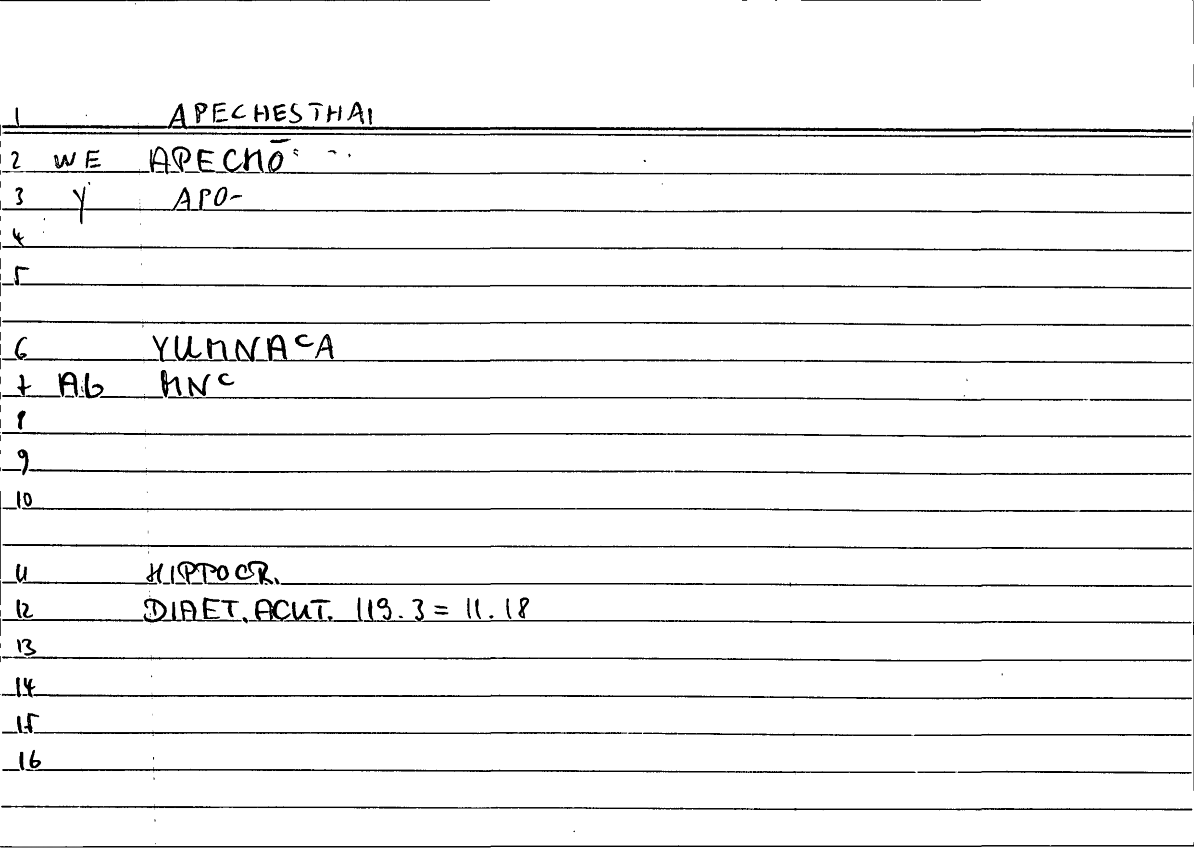 1 APECHESTHAI
2 WE APECHŌ
3 Y APO-
4
5
6 YUMNAᶜA
7 Ab MNᶜ
8
9
10
11 HIPPOCR.
12 DIAET. ACUT. 119.3 = 11.18
13
14
15
16